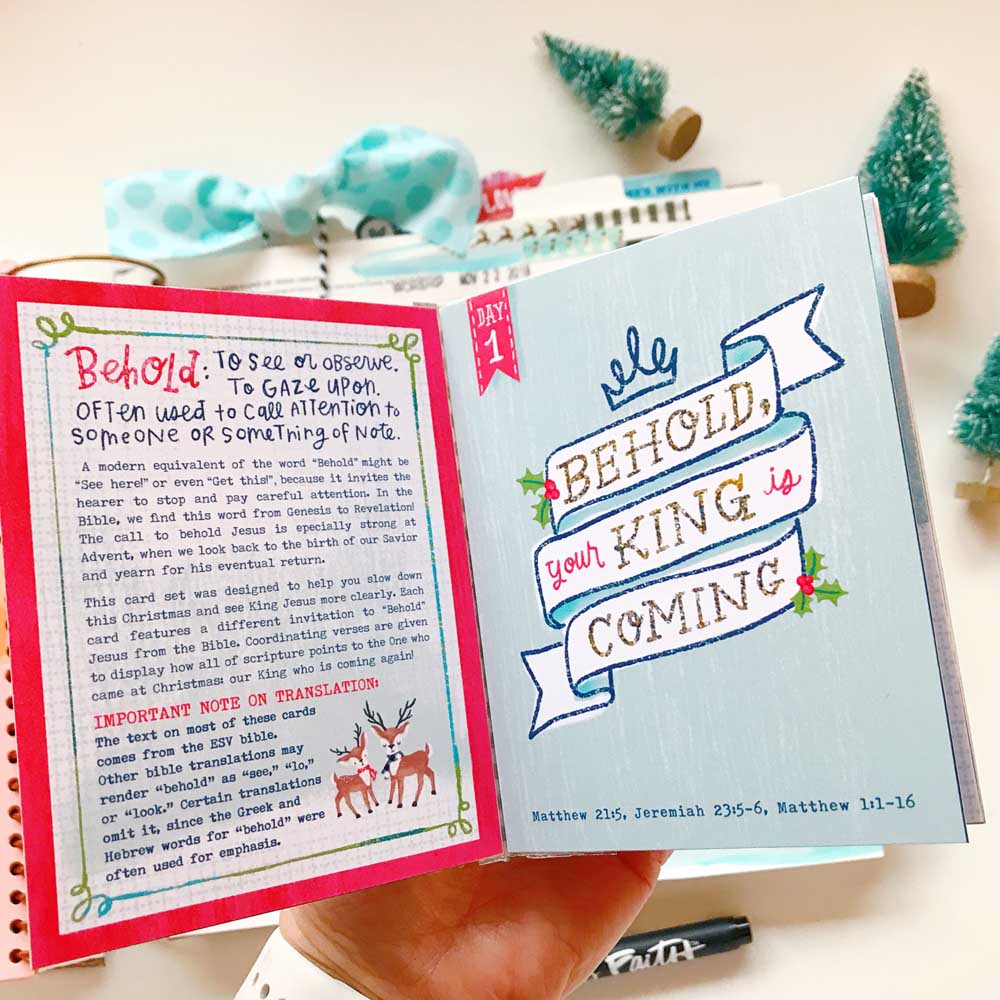 Behold: To see or observe.
To gaze upon.
Often used to call attention to
someone or something of note.
A modern equivalent of the word "Behold" might be
"See here!" or even "Get this!", because it invites the
hearer to stop and pay careful attention. In the
Bible, we find this word from Genesis to Revelation!
The call to behold Jesus is epecially strong at
Advent, when we look back to the birth of our Savior
and yearn for his eventual return.
This card set was designed to help you slow down
this Christmas and see King Jesus more clearly. Each
card features a different invitation to "Behold"
Jesus from the Bible. Coordinating verses are given
to display how all of scripture points to the One who
came at Christmas: our King who is coming again!
IMPORTANT NOTE ON TRANSLATION:
The text on most of these cards
comes from the ESV bible.
Other bible translations may
render "behold" as "see," "lo,"
or "look." Certain translations
omit it, since the Greek and
Hebrew words for "behold" were
often used for emphasis.
DAY
1
BEHOLD,
your KING is
COMING
Matthew 21:5, Jeremiah 23:5-6, Matthew 1:1-16
WORSHIP NOV 22 2018
FAITH